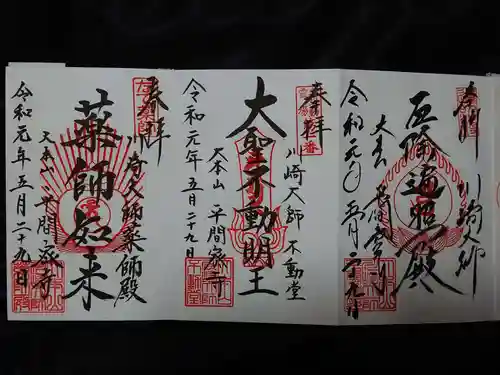 奉拝
川崎大師
遍照殿
大本山
平間寺
令和元年五月二十九日
奉拝
川崎大師不動堂
大聖不動明王
大本山平間寺
令和元年五月二十九日
奉拝
川崎大師薬師殿
薬師如来
大本山平間寺
令和元年五月二十九日